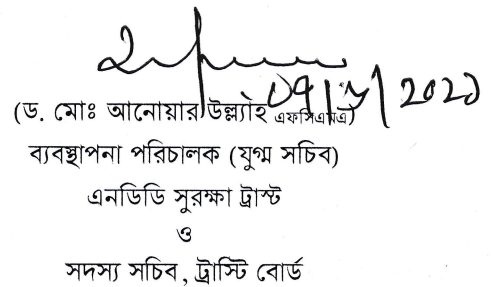 (ড. মোঃ আনোয়ার উল্ল্যাহ এফসিএমএ)
ব্যবস্থাপনা পরিচালক (যুগ্ম সচিব)
এনডিডি সুরক্ষা ট্রাস্ট
ও
সদস্য সচিব, ট্রাস্টি বোর্ড